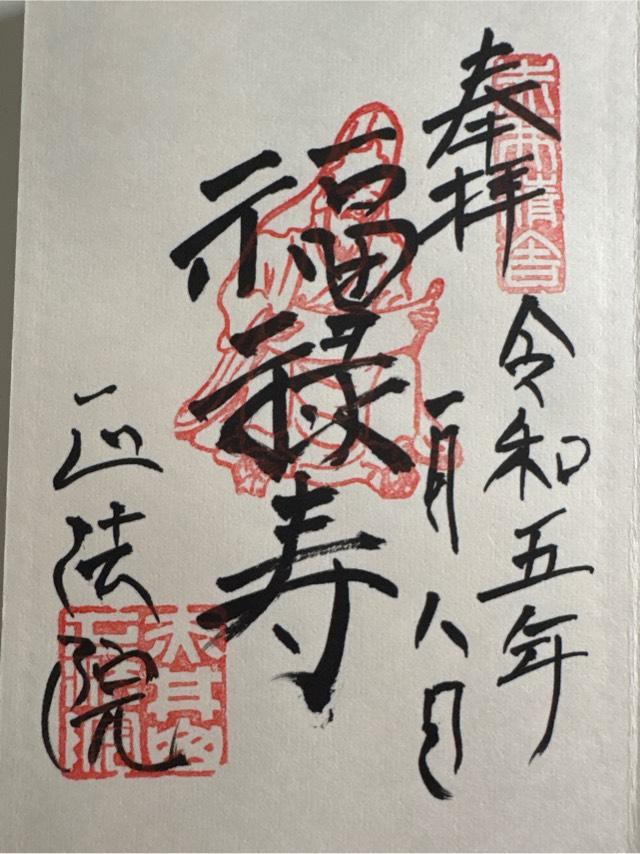 奉拝
令和五年
一月八日
福禄寿
正法院